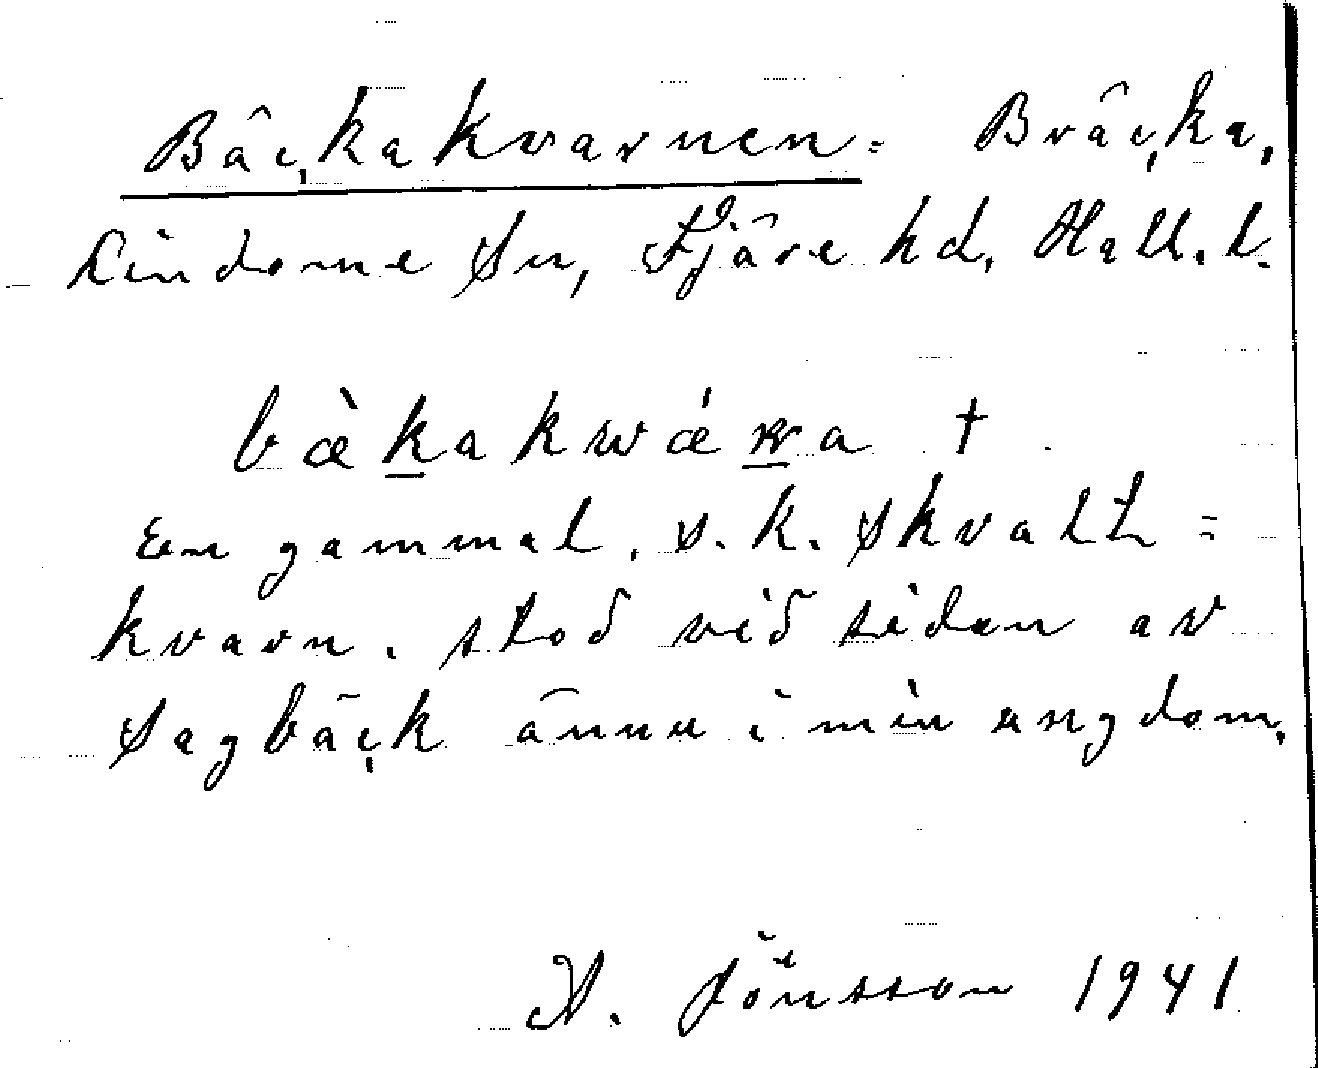 Bäckakvarnen: Bräcka,
Lindome Sn, Fjäre hd, Hall. l.
bæ̀k̲akwáṉa †
En gammal, s.k. skvalt=
kvarn, stod vid sidan av
Sagbäck ännu i min ungdom.
A. Jönsson 1941